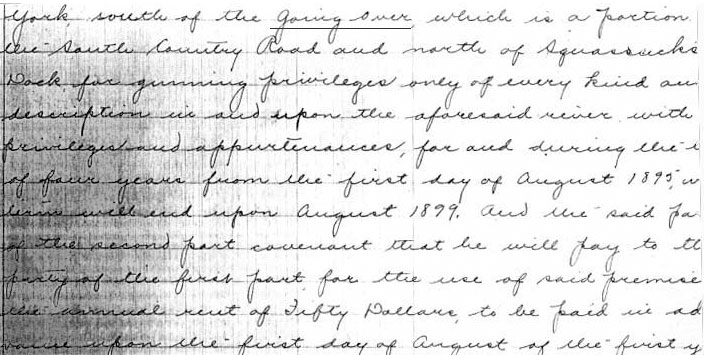 York, south of the Going Over, which is a portion
the South Country Road and north of Squassucks
Dock for gunning privileges only of every kind an
description in and upon the aforesaid river with
privileges and appurtenances, for and during the
of four years from the first day of August 1895, w
term will end upon August 1899. And the said pa
of the second part covenant that he will pay to th
party of the first part for the use of said premise
the annual rent of Fifty Dollars, to be paid in ad
vance upon the first day of August of the first y